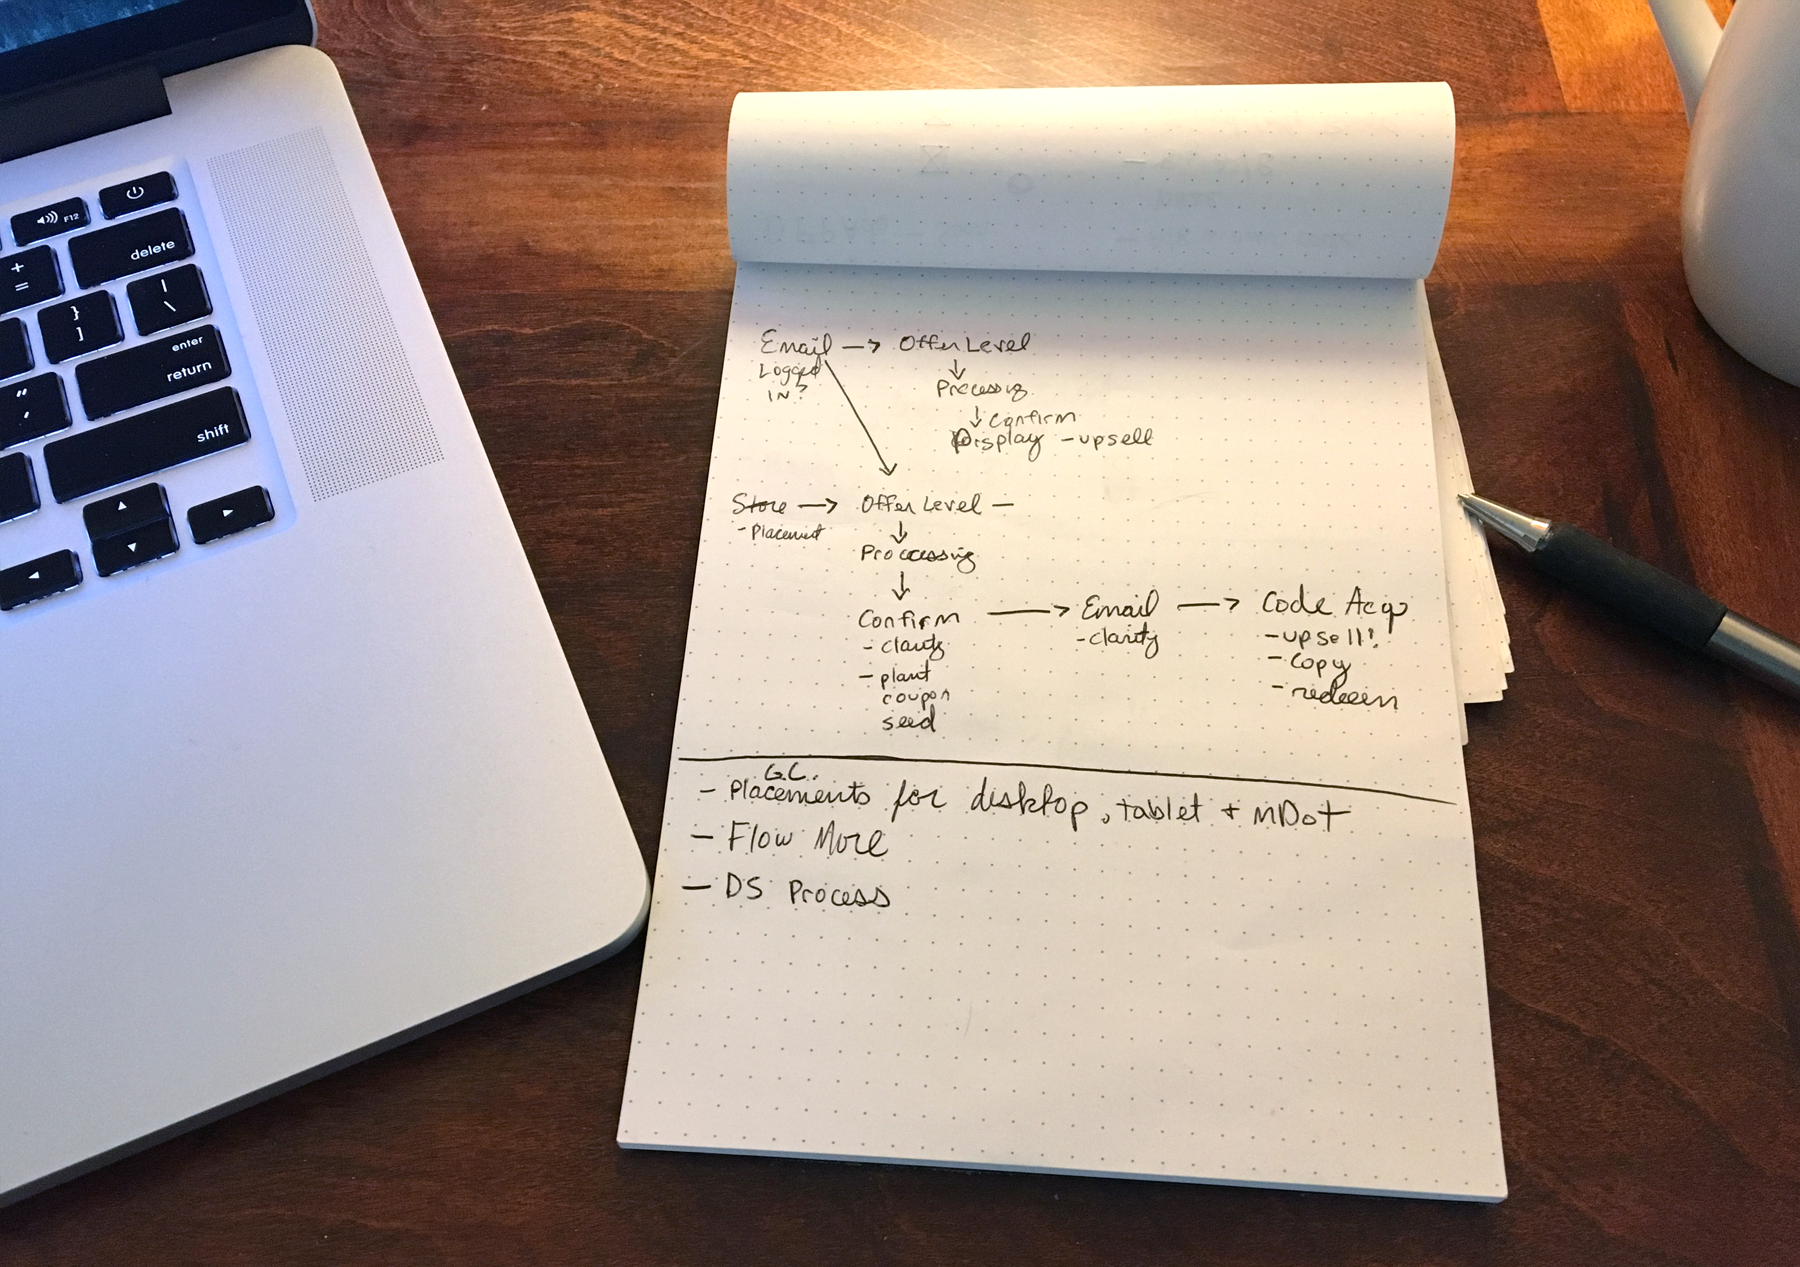 F12
delete
+
=
}
]
|
\
enter
return
"
,
shift
Email → Offer Level
Logged
IN?
↓
Processing
↓ Confirm
Display - upsell
Store → Offer Level —
- Placement
↓
Proccessing
↓
Confirm → Email → Code Acq
- clarity
- clarity
- upsell?
- plant
coupon
seed
- copy
- redeem
G.C.
- Placements for desktop, tablet + MDot
- Flow More
- DS Process